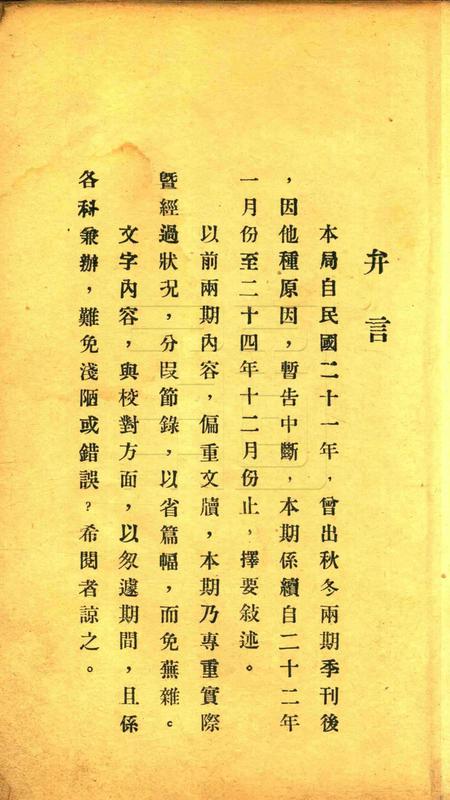 弁言
本局自民國二十一年，曾出秋冬兩期季刊後
，因他種原因，暫告中斷，本期係續自二十二年
一月份至二十四年十二月份止，擇要敍述。
以前兩期內容，偏重文牘，本期乃專重實際
暨經過狀况，分段節錄，以省篇幅，而免蕪雜。
文字內容，與校對方面，以匆遽期間，且係
各科兼辦，難免淺陋或錯誤？希閱者諒之。